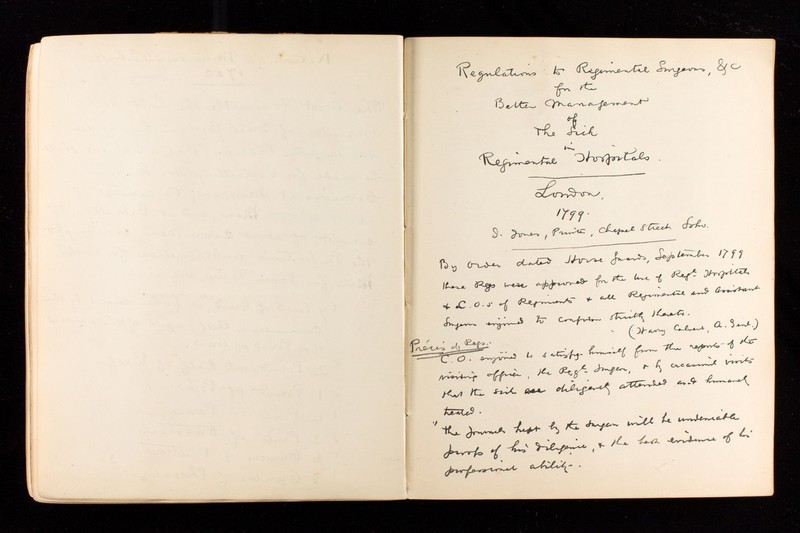 Regulations to Regimental Surgeons, &c
for the
Better Management
of
The Sick
in
Regimental Hospitals.
London,
1799.
J. Jones, Printer, Chapel Street Soho.
By Order dated Horse Guards, September 1799
these Regs were approved for the use of Regtl Hospitals
& C.O.s of Regiments & all Regimental and Assistant
Surgeons enjoined to conform strictly thereto.
(Harry Calvert, A. Genl.)
Précis of Regs:-
C.O. enjoined to satisfy himself from the reports of the
visiting officer, the Regtl Surgeon, & by occasional visits
that the sick are diligently attended and humanely
treated.
"The Journals kept by the Surgeon will be undeniable
proofs of his diligence, & the best evidence of his
professional ability.